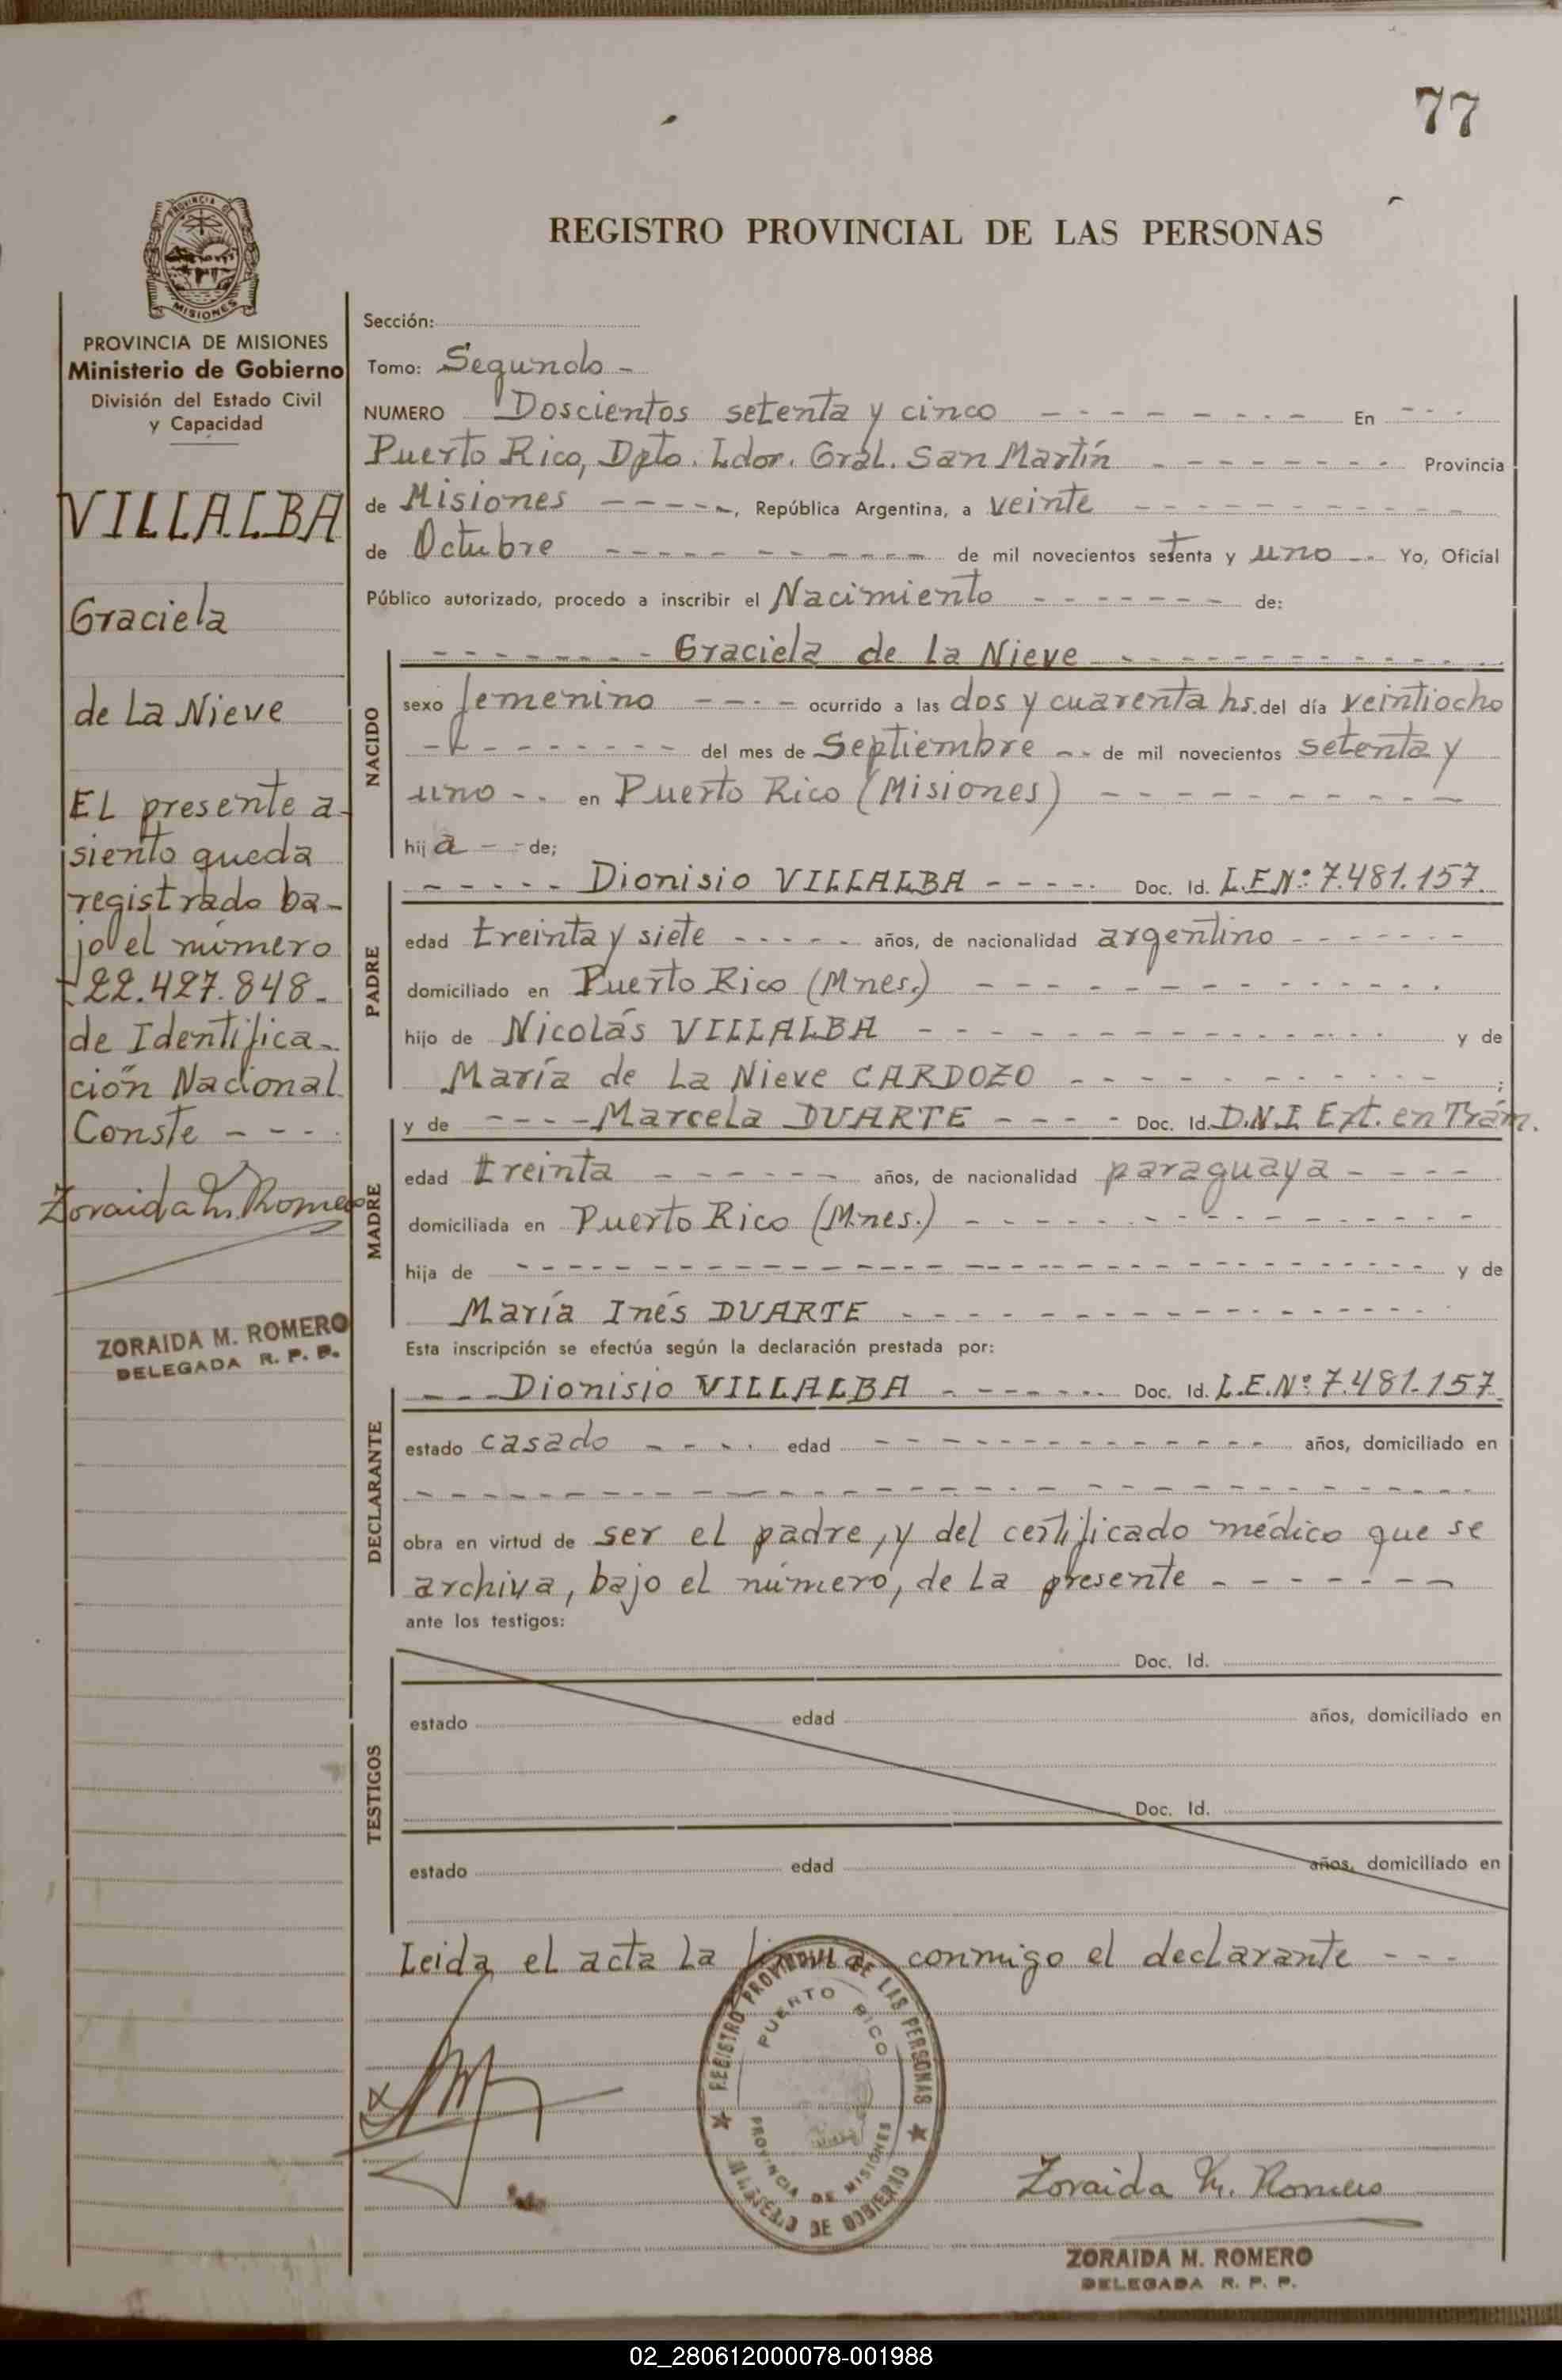 77
PROVINCIA DE
MISIONES
REGISTRO PROVINCIAL DE LAS PERSONAS
PROVINCIA DE MISIONES
Ministerio de Gobierno
División del Estado Civil
y Capacidad
VILLALBA
Graciela
de La Nieve
EL presente a-
siento queda
registrado ba-
jo el número
22.427.848-
de Identifica-
ción Nacional
Conste - - -
Zoraida M. Romero
ZORAIDA M. ROMERO
DELEGADA R. P. P.
Sección:
Tomo: Segundo -
NUMERO Doscientos setenta y cinco - - - - - - - - - En - - -
Puerto Rico, Dpto. Ldor. Gral. San Martín - - - - - - - - Provincia
de Misiones - - - - -, República Argentina, a veinte - - - - - - - - - - -
de Octubre - - - - - - - - - - - de mil novecientos setenta y uno - - Yo, Oficial
Público autorizado, procedo a inscribir el Nacimiento - - - - - - - de:
NACIDO
- - - - - - - - Graciela de La Nieve - - - - - - - - - - - -
sexo femenino - - - - ocurrido a las dos y cuarenta hs. del día veintiocho
- - - - - - - - - del mes de Septiembre - - de mil novecientos setenta y
uno - - en Puerto Rico (Misiones) - - - - - - - - - -
hija - - de;
PADRE
- - - - - Dionisio VILLALBA - - - - - Doc. Id. L.E.Nº: 7.481.157.
edad treinta y siete - - - - - años, de nacionalidad argentino - - - - - - -
domiciliado en Puerto Rico (Mnes.) - - - - - - - - - - - - -
hijo de Nicolás VILLALBA - - - - - - - - - - - - - - y de
María de La Nieve CARDOZO - - - - - - - - - - - ;
MADRE
y de - - - - Marcela DUARTE - - - - Doc. Id. D.N.I. Ext. en Trám.
edad treinta - - - - - - años, de nacionalidad paraguaya - - - -
domiciliada en Puerto Rico (Mnes.) - - - - - - - - - - - - - - -
hija de - - - - - - - - - - - - - - - - - - - - - - - - y de
María Inés DUARTE - - - - - - - - - - - - - - - -
Esta inscripción se efectúa según la declaración prestada por:
DECLARANTE
- - - Dionisio VILLALBA - - - - - - - Doc. Id. L.E.Nº: 7.481.157.
estado casado - - - - edad - - - - - - - - - - - - - años, domiciliado en
- - - - - - - - - - - - - - - - - - - - - - - - - - - -
obra en virtud de ser el padre, y del certificado médico que se
archiva, bajo el número, de La presente - - - - - - -
ante los testigos:
TESTIGOS
Doc. Id.
estado edad años, domiciliado en
Doc. Id.
estado edad años, domiciliado en
Leida el acta La firma conmigo el declarante - - -
REGISTRO PROVINCIAL DE LAS PERSONAS
PUERTO RICO
PROVINCIA DE MISIONES
MINISTERIO DE GOBIERNO
Zoraida M. Romero
ZORAIDA M. ROMERO
DELEGADA R. P. P.
02_280612000078-001988